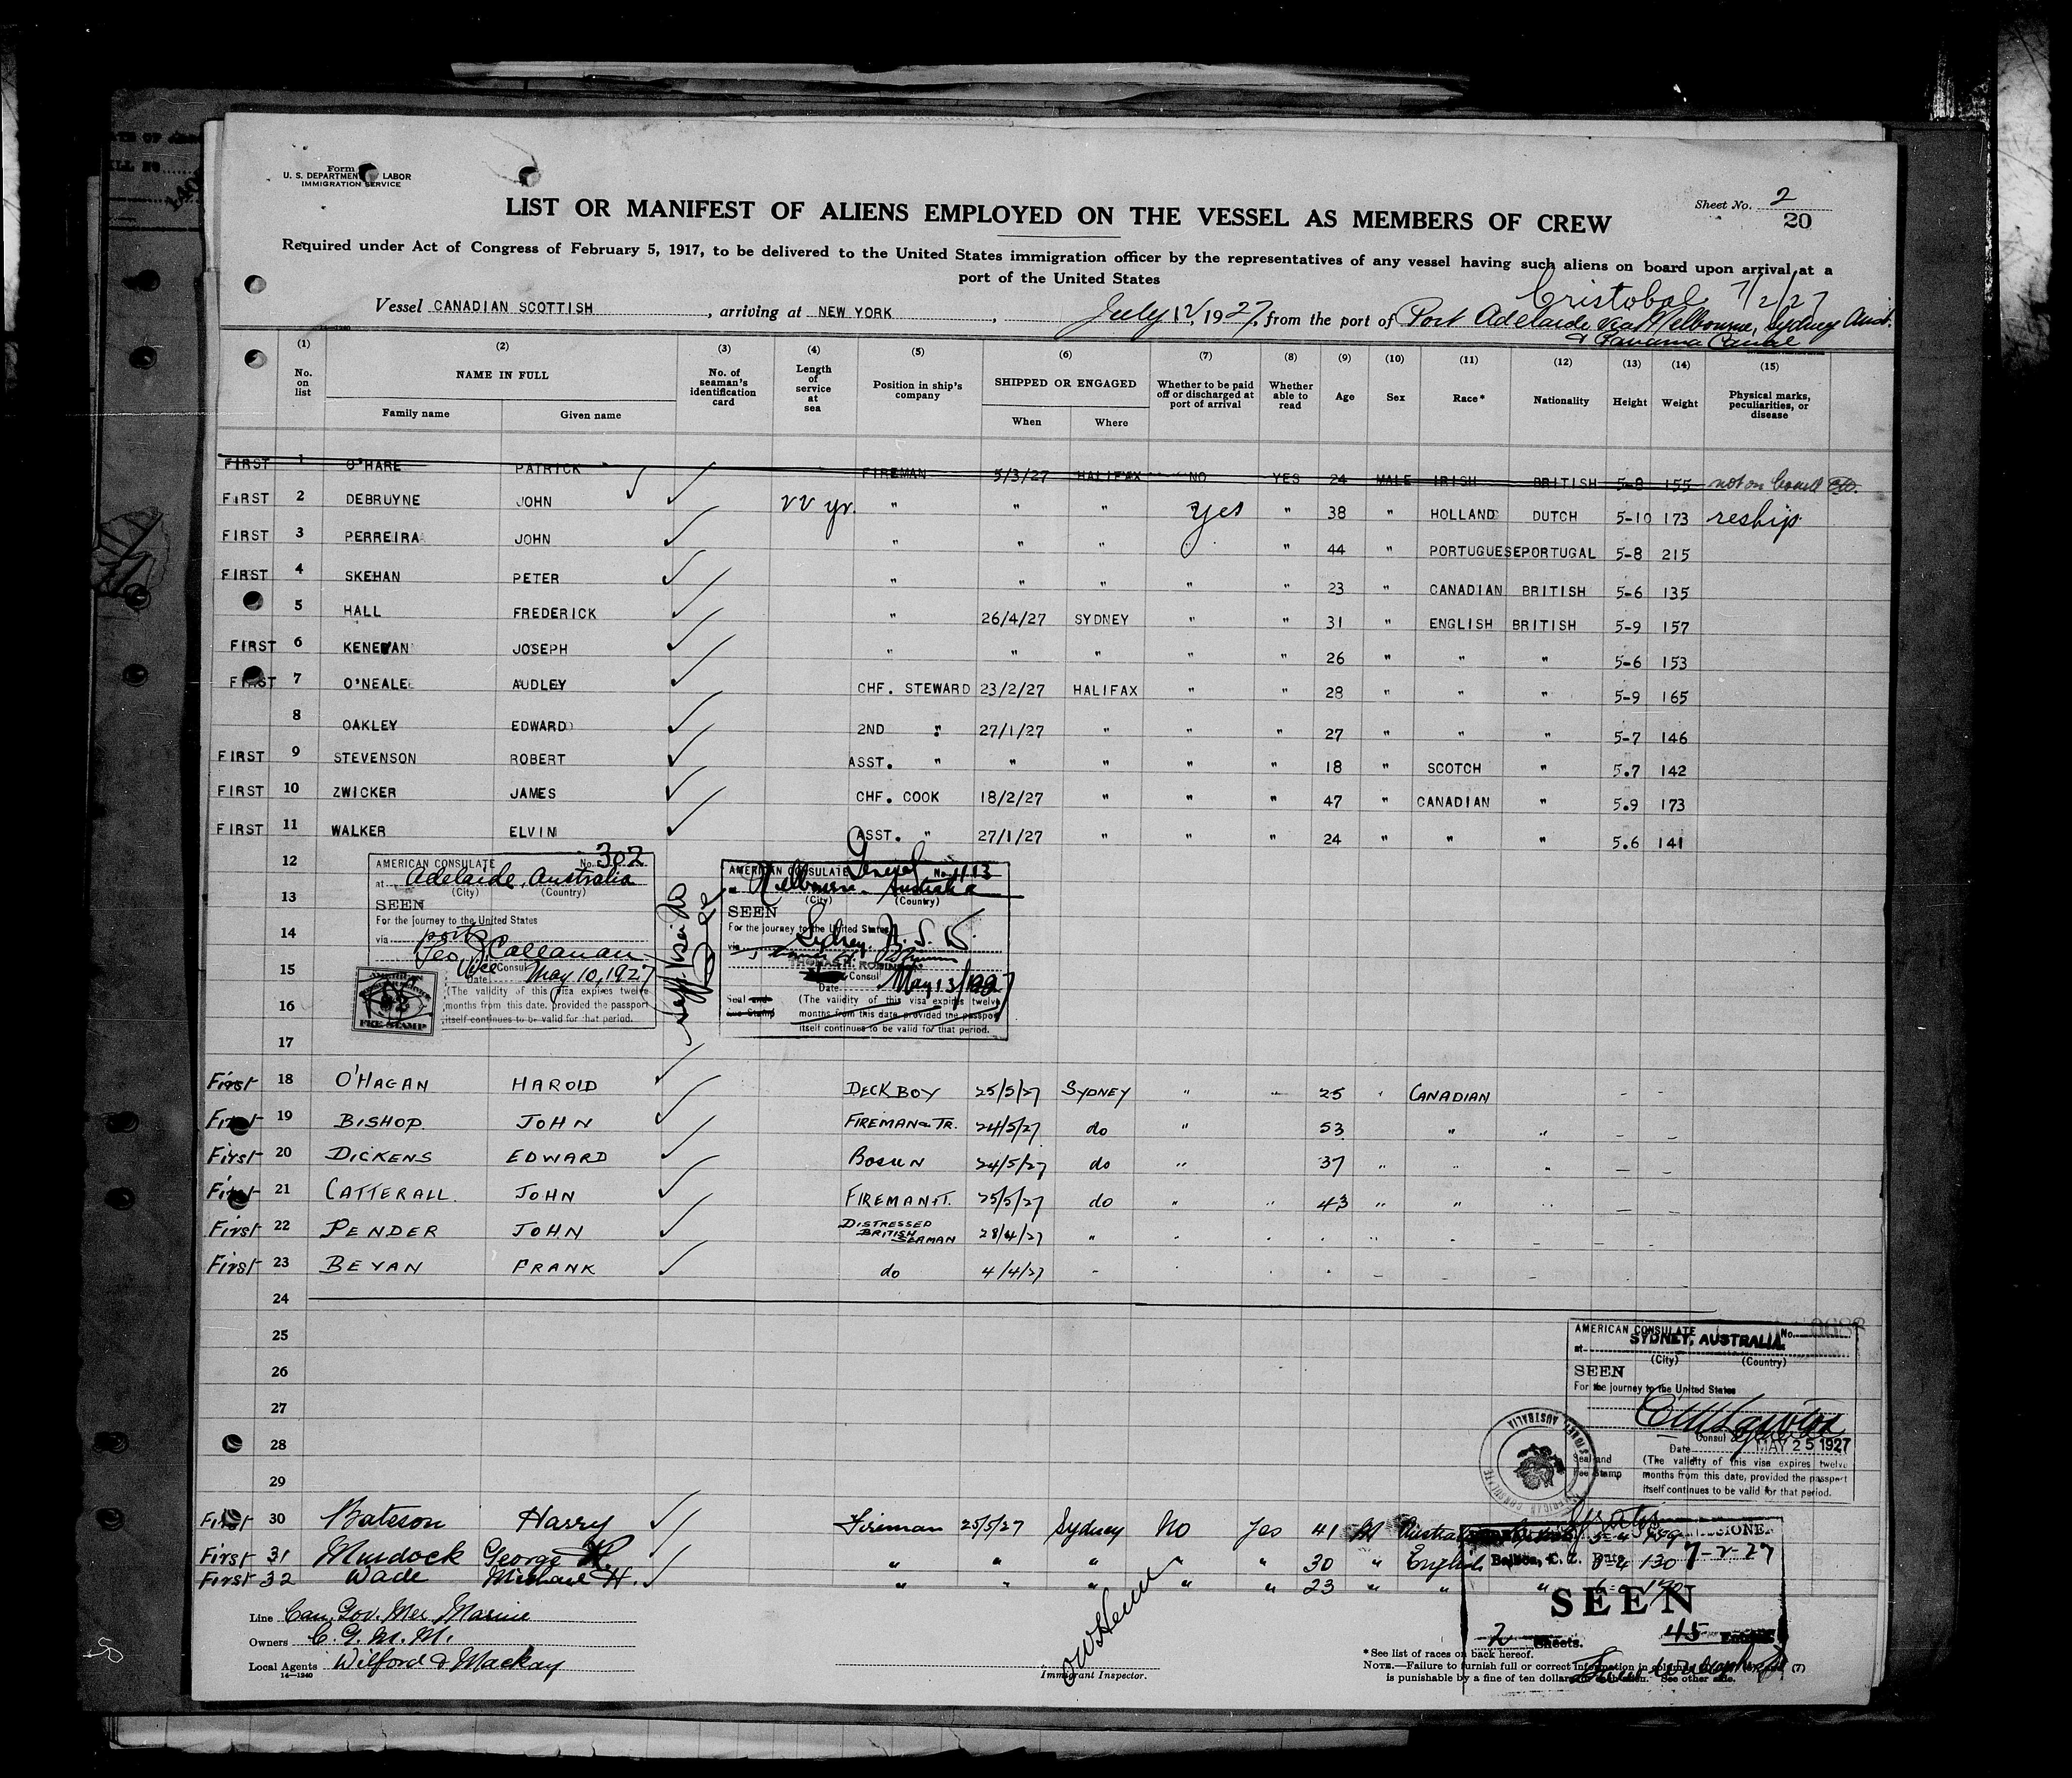 Form
U. S. DEPARTMENT LABOR
IMMIGRATION SERVICE
Sheet No. 2
20
LIST OR MANIFEST OF ALIENS EMPLOYED ON THE VESSEL AS MEMBERS OF CREW
Required under Act of Congress of February 5, 1917, to be delivered to the United States immigration officer by the representatives of any vessel having such aliens on board upon arrival at a
port of the United States
Cristobal 7/2/27
Vessel CANADIAN SCOTTISH, arriving at NEW YORK, July 12, 1927, from the port of Port Adelaide via Melbourne, Sydney Aust.
& Panama Canal
14—1240
(1) (2) (3) (4) (5) (6) (7) (8) (9) (10) (11) (12) (13) (14) (15)
No. on list NAME IN FULL No. of seaman's identification card Length of service at sea Position in ship's company SHIPPED OR ENGAGED Whether to be paid off or discharged at port of arrival Whether able to read Age Sex Race* Nationality Height Weight Physical marks, peculiarities, or disease
Family name Given name When Where
FIRST 1 O'HARE PATRICK FIREMAN 5/3/27 HALIFAX NO YES 24 MALE IRISH BRITISH 5-8 155 not on board
FIRST 2 DEBRUYNE JOHN 22 yr. " " " Yes " 38 " HOLLAND DUTCH 5-10 173 reship
FIRST 3 PERREIRA JOHN " " " " " 44 " PORTUGUESE PORTUGAL 5-8 215
FIRST 4 SKEHAN PETER " " " " " 23 " CANADIAN BRITISH 5-6 135
5 HALL FREDERICK " 26/4/27 SYDNEY " " 31 " ENGLISH BRITISH 5-9 157
FIRST 6 KENEVAN JOSEPH " " " " " 26 " " " 5-6 153
FIRST 7 O'NEALE AUDLEY CHF. STEWARD 23/2/27 HALIFAX " " 28 " " " 5-9 165
8 OAKLEY EDWARD 2ND " 27/1/27 " " " 27 " " " 5-7 146
FIRST 9 STEVENSON ROBERT ASST. " " " " " 18 " SCOTCH " 5.7 142
FIRST 10 ZWICKER JAMES CHF. COOK 18/2/27 " " " 47 " CANADIAN " 5.9 173
FIRST 11 WALKER ELVIN ASST. " 27/1/27 " " " 24 " " " 5.6 141
12
13
14
15
16
17
AMERICAN CONSULATE No. 302
at Adelaide, Australia
(City) (Country)
SEEN
For the journey to the United States
via ports
Geo. J. Callanan
Vice Consul
Date May 10, 1927
(The validity of this visa expires twelve
months from this date, provided the passport
itself continues to be valid for that period.
AMERICAN
FEE STAMP
General
AMERICAN CONSULATE No. 1113
Melbourne, Australia
(City) (Country)
SEEN
For the journey to the United States
via Sydney N. S. W.
Consul
Date May 13/1927
Seal and
Fee Stamp
(The validity of this visa expires twelve
months from this date, provided the passport
itself continues to be valid for that period.
First 18 O'HAGAN HAROLD DECK BOY 25/5/27 SYDNEY " " 25 " CANADIAN - -
First 19 BISHOP. JOHN FIREMAN & TR. 24/5/27 do " 53 " " - -
First 20 DICKENS EDWARD BOSUN 24/5/27 do " 37 " " " - -
First 21 CATTERALL. JOHN FIREMAN & T. 25/5/27 do " " 43 " " " - -
First 22 PENDER JOHN DISTRESSED BRITISH SEAMAN 28/4/27 "
First 23 BEVAN FRANK do 4/4/27 -
24
25
26
27
28
29
AMERICAN CONSULATE No.
at SYDNEY, AUSTRALIA
(City) (Country)
SEEN
For the journey to the United States
Consul
Date MAY 25 1927
Seal and
Fee Stamp
(The validity of this visa expires twelve
months from this date, provided the passport
itself continues to be valid for that period.
AMERICAN CONSULATE SYDNEY, AUSTRALIA
First 30 Bateson Harry Fireman 25/5/27 Sydney No Yes 41 M
First 31 Murdock George R. " " " " " 30 " English 130
First 32 Wade Michael H. " " " " " 23 " " "
Balboa, C. Z. Date 7-2-27
SEEN
2 Sheets. 45
Line Can. Gov. Mer. Marine
Owners C. G. M. M.
Local Agents Wilford & Mackay
14—1240
Immigrant Inspector.
*See list of races on back hereof.
NOTE.—Failure to furnish full or correct information in columns
is punishable by a fine of ten dollars for each alien. See other side.